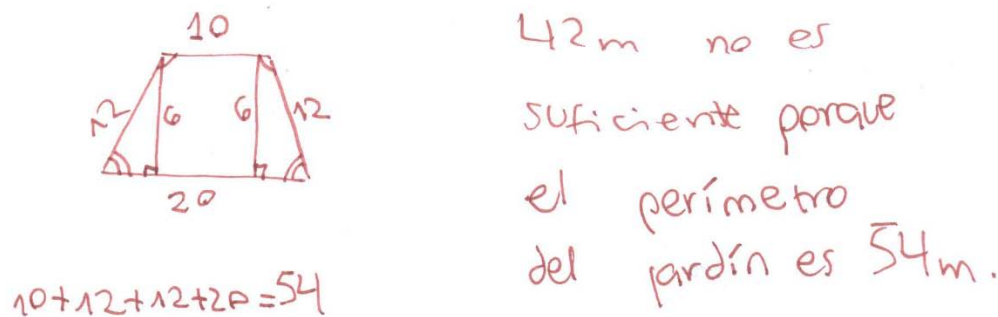 10
12 6 6 12
20
10+12+12+20=54
42m no es
suficiente porque
el perímetro
del jardín es 54m.